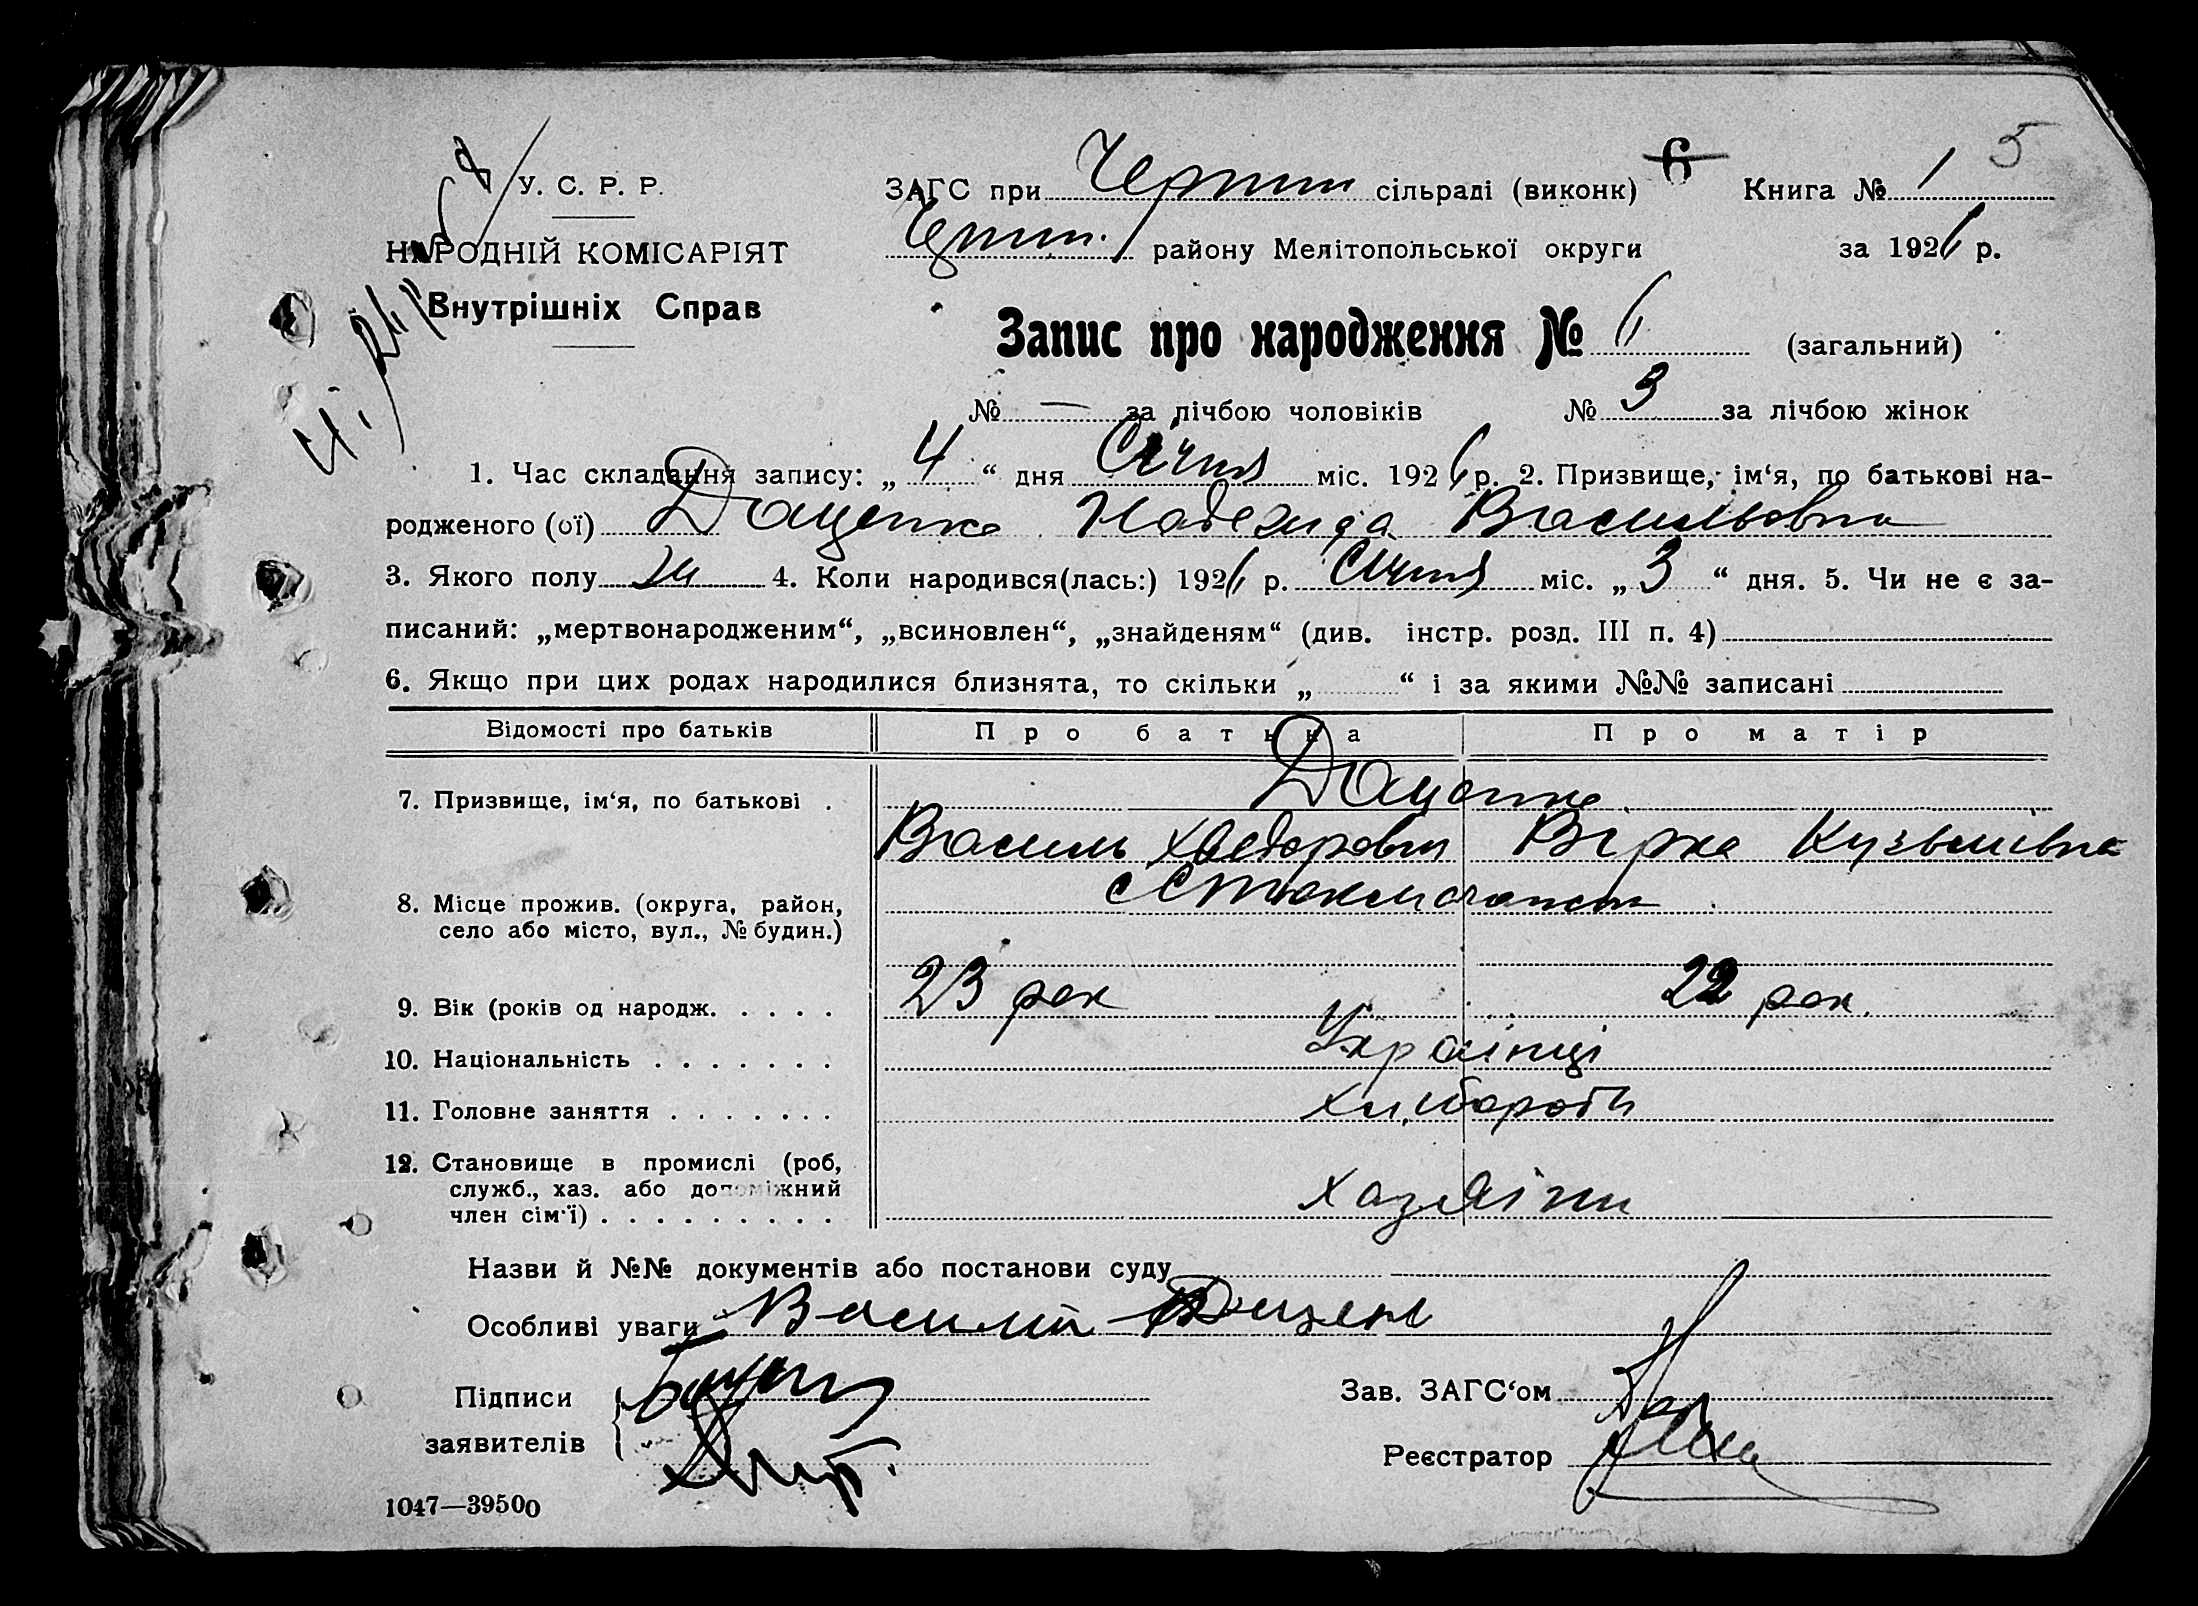 У. С. Р. Р.
НАРОДНІЙ КОМІСАРІЯТ
Внутрішніх Справ
ЗАГС при сільраді (виконк) 6 Книга № 1 5
району Мелітопольської округи за 1926 р.
Запис про народження № 6 (загальний)
№ — за лічбою чоловіків № 3 за лічбою жінок
1. Час складання запису: „ 4 “ дня Січня міс. 1926 р. 2. Призвище, ім‘я, по батькові на-
родженого (ої) Доценко Надежда Васильовна
3. Якого полу ж 4. Коли народився(лась:) 1926 р. Січня міс. „ 3 “ дня. 5. Чи не є за-
писаний: „мертвонародженим“, „всиновлен“, „знайденям“ (див. інстр. розд. III п. 4)
6. Якщо при цих родах народилися близнята, то скільки „ “ і за якими №№ записані
Відомості про батьків Про батька Про матір
7. Призвище, ім‘я, по батькові . Доценко
Василь Хведорович Вірка Кузьмівна
8. Місце прожив. (округа, район,
село або місто, вул., № будин.)
9. Вік (років од народж. . . . . 23 рок 22 рок
10. Національність . . . . . . . Українці
11. Головне заняття . . . . . . . Хлібороби
12. Становище в промислі (роб,
служб., хаз. або допоміжний
член сім‘ї) . . . . . . . . . Хазяїни
Назви й №№ документів або постанови суду
Особливі уваги Василий
Підписи
заявителів
Зав. ЗАГС‘ом
Реєстратор
1047—39500